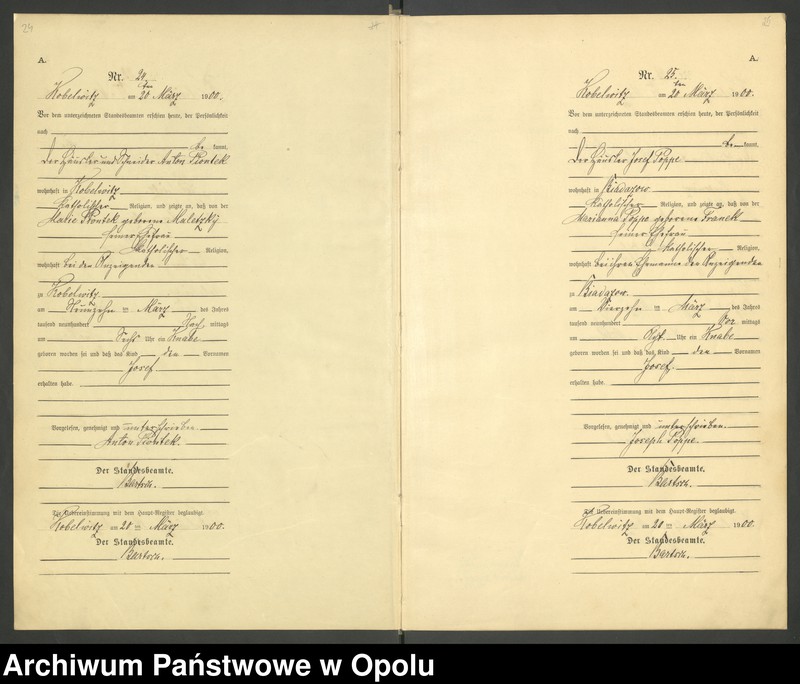 24
A.
Nr. 24.
Kobelwitz am 20ten März 1900.
Vor dem unterzeichneten Standesbeamten erschien heute, der Persönlichkeit
nach
be kannt,
der Häusler und Schneider Anton Piontek
wohnhaft in Kobelwitz
katholischer Religion, und zeigte an, daß von der
Marie Piontek geborene Maletzky
seiner Ehefrau
katholischer Religion,
wohnhaft bei den Anzeigenden
zu Kobelwitz
am Neunzehn ten März des Jahres
tausend neunhundert Nach mittags
um Sechs Uhr ein Knabe
geboren worden sei und daß das Kind den Vornamen
Josef
erhalten habe.
Vorgelesen, genehmigt und unterschrieben
Anton Piontek.
Der Standesbeamte.
Zur Uebereinstimmung mit dem Haupt-Register beglaubigt.
Kobelwitz am 20 ten März 1900.
Der Standesbeamte.
A.
Nr. 25.
Kobelwitz am 20ten März 1900.
Vor dem unterzeichneten Standesbeamten erschien heute, der Persönlichkeit
nach
be kannt,
der Häusler Josef Poppe
wohnhaft in
katholischer Religion, und zeigte an, daß von der
Marianna Poppe geborene Franek
seiner Ehefrau
katholischer Religion,
wohnhaft bei ihrem Ehemanne den Anzeigenden
zu
am Vierzehn ten März des Jahres
tausend neunhundert Vor mittags
um Acht Uhr ein Knabe
geboren worden sei und daß das Kind den Vornamen
Josef
erhalten habe.
Vorgelesen, genehmigt und unterschrieben.
Joseph Poppe.
Der Standesbeamte.
Zur Uebereinstimmung mit dem Haupt-Register beglaubigt.
Kobelwitz am 20 ten März 1900.
Der Standesbeamte.
Archiwum Państwowe w Opolu